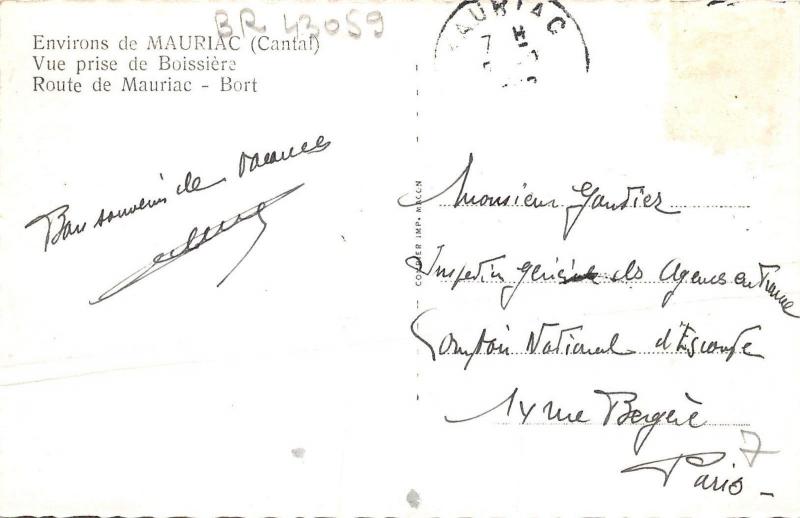 BR 43059
Environs de MAURIAC (Cantal)
Vue prise de Boissière
Route de Mauriac - Bort
MAURIAC
7 H
Bon souvenir de vacances
COMBIER IMP. MACON
Monsieur Gaudier
Inspection générale des Agences en France
Comptoir National d'Escompte
14 rue Bergère
Paris -
7